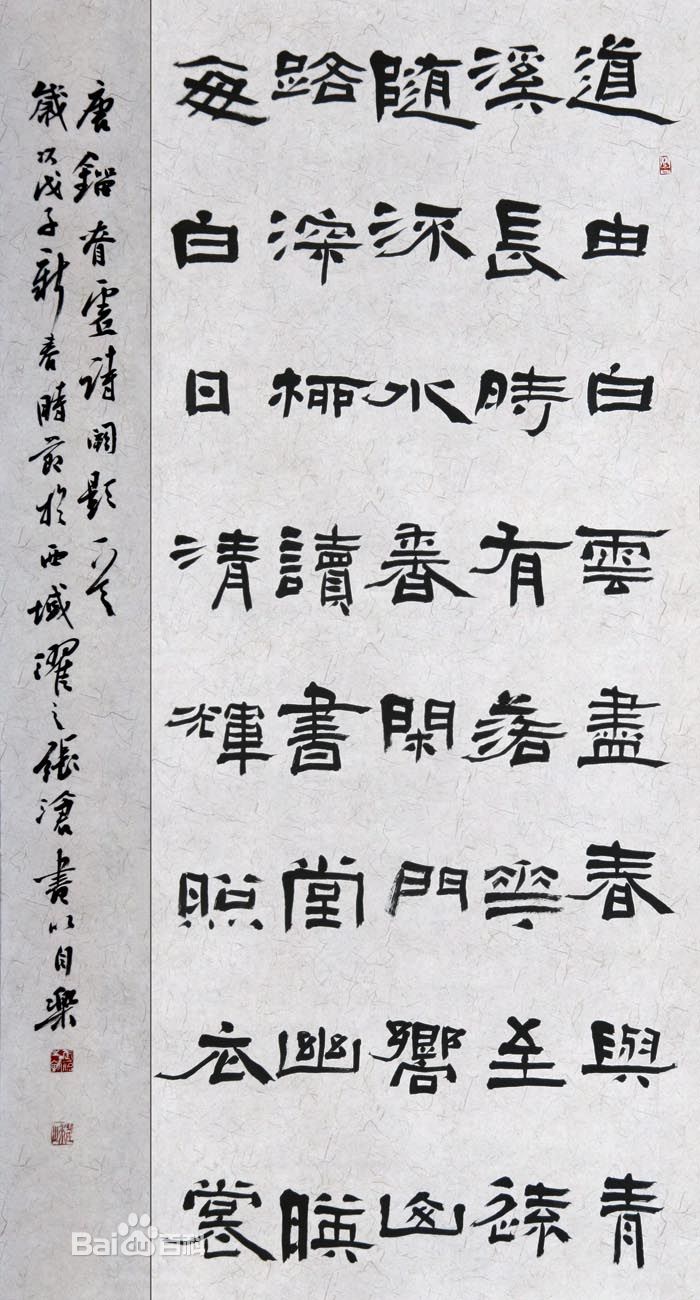 道由白雲盡春與青
溪長時有落華至遠
隨流水香閑門嚮山
路深柳讀書堂幽暎
每白日清輝照衣裳
唐鎦昚虛詩闕題一首
歲次戊子新春時節於西域濯之張滄書以自樂
Bai百科